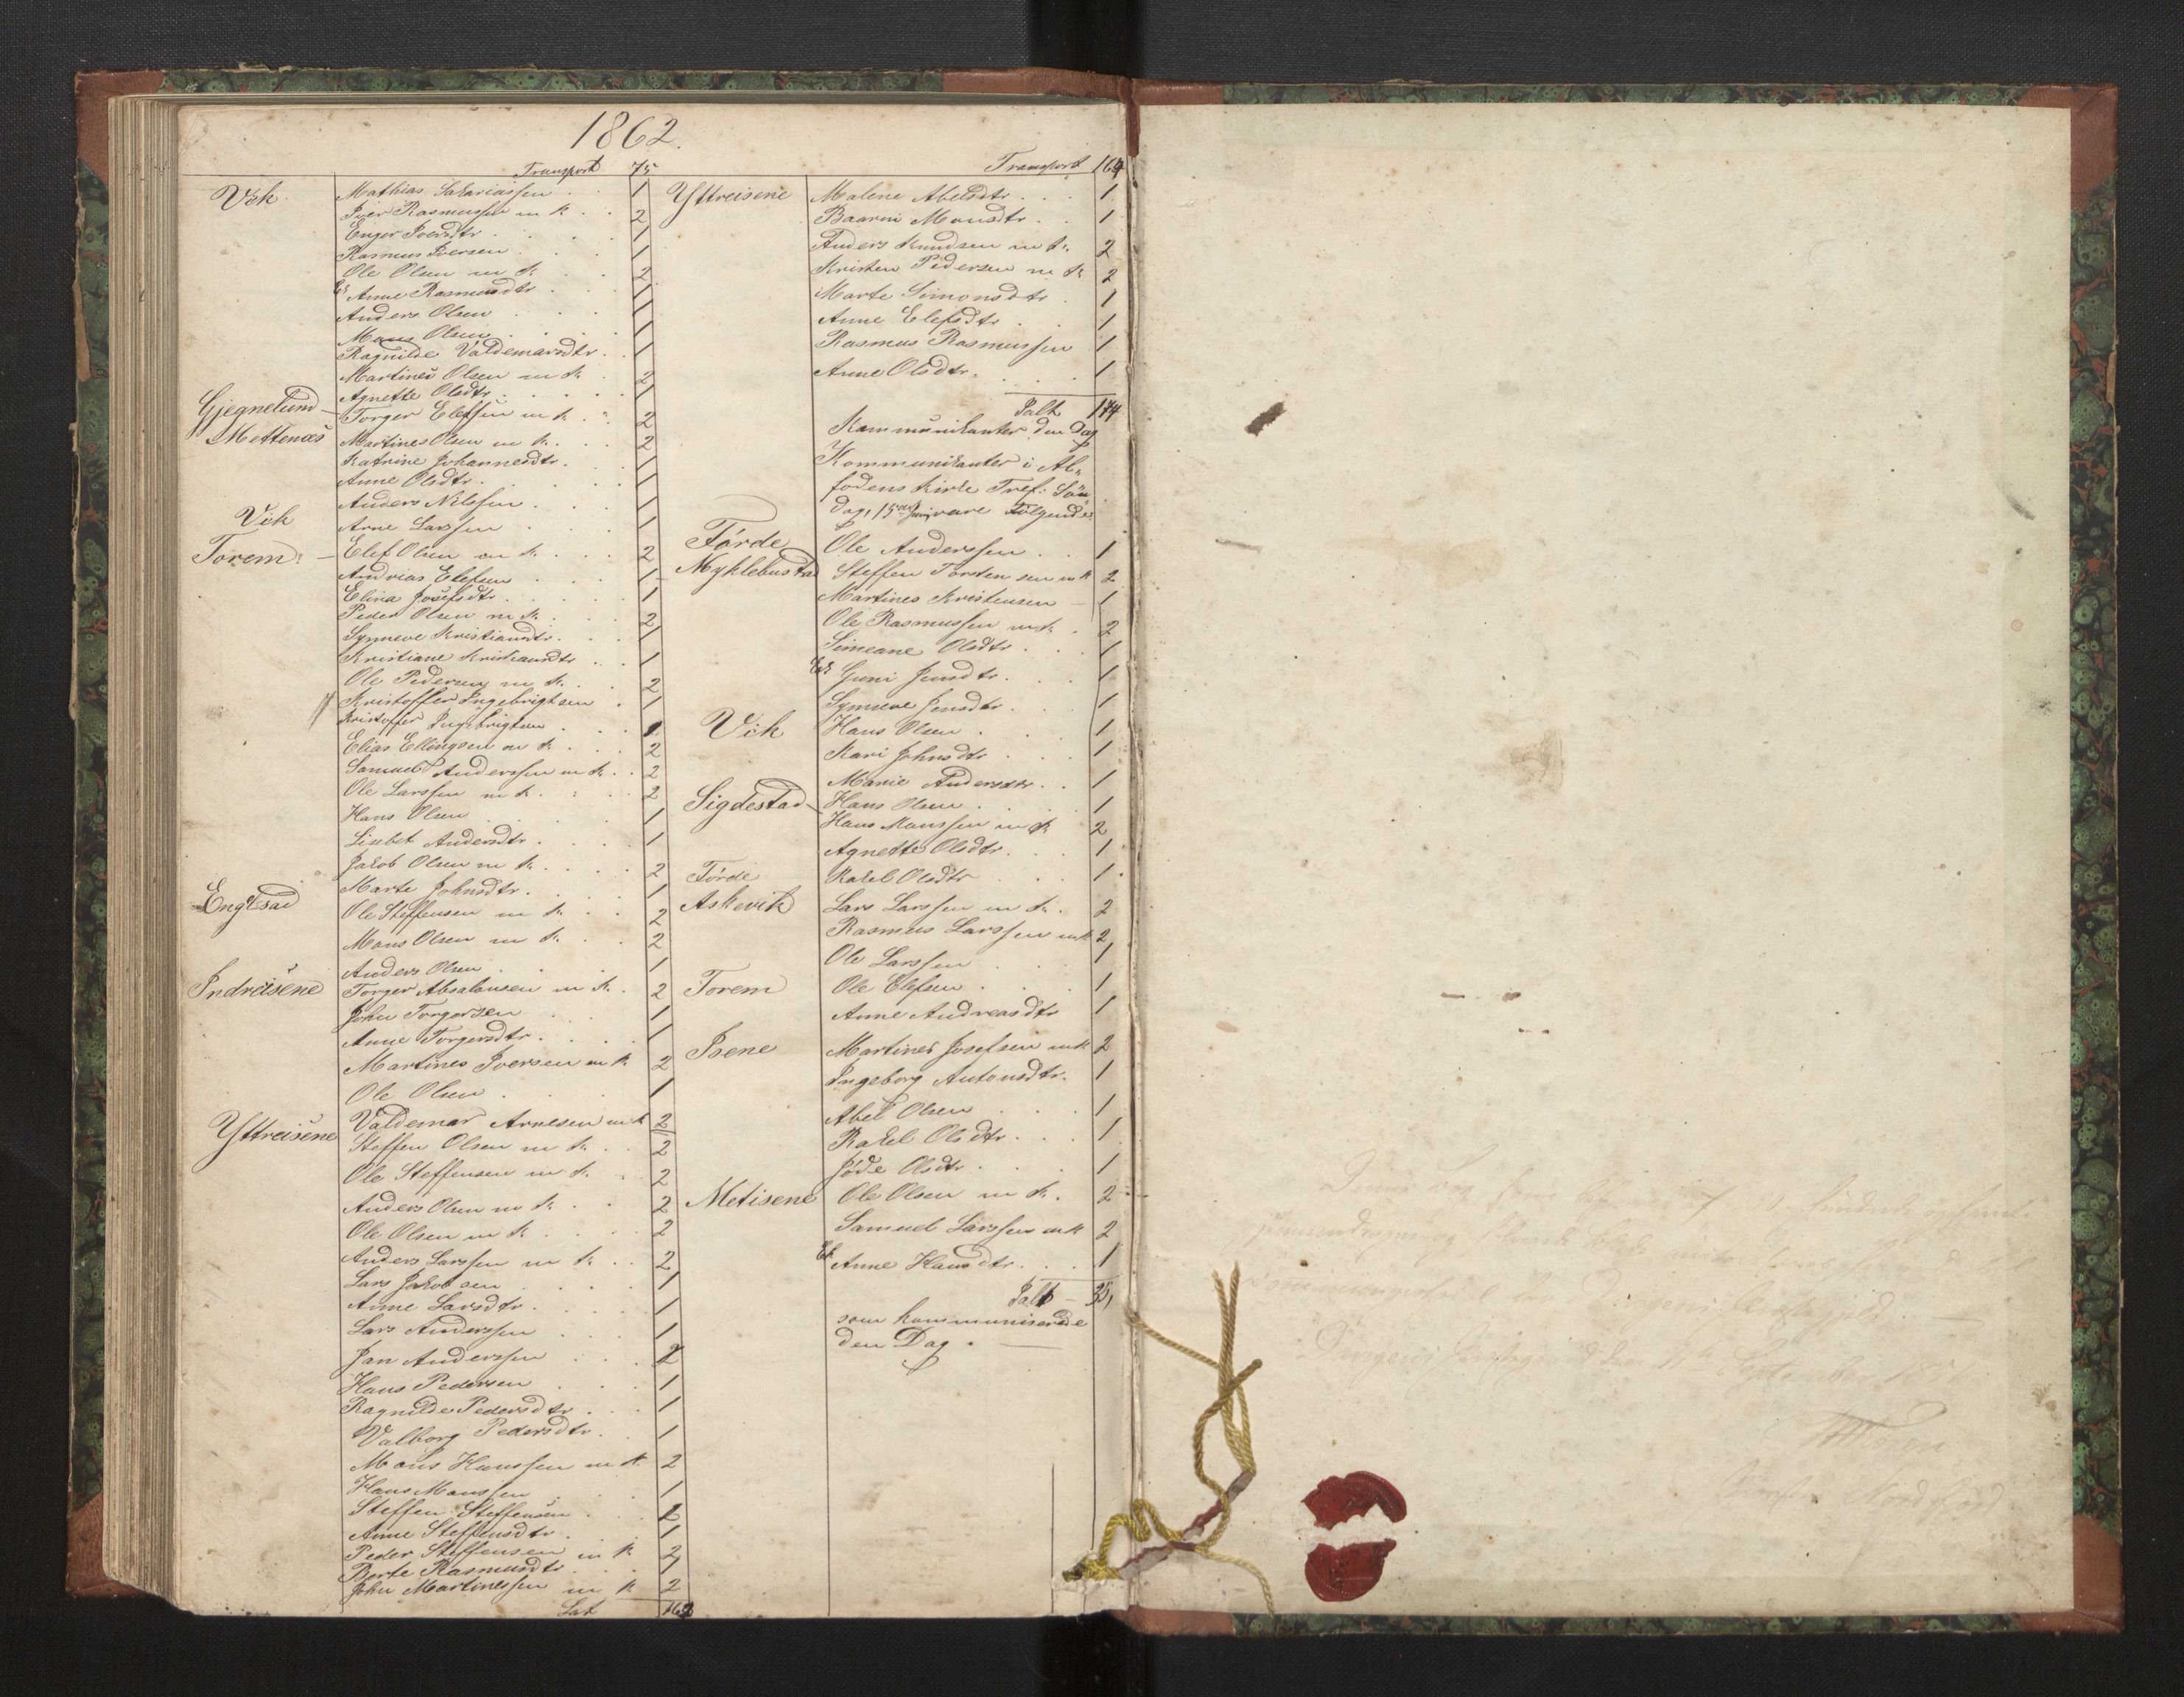 1862.
Transport 75
Vik Mathias Sakariassen . . 1
Iver Rasmussen m k. . . 2
Enger Iversdtr . . . 1
Rasmus Iversen . . . 1
Ole Olsen m k. . . 2
Ek Anne Rasmusdtr . . . 1
Anders Olsen . . . 1
Mons Olsen . . . 1
Ragnilde Valdemarsdtr. . 1
Martines Olsen m k. . 2
Agnette Olsdtr. . . . 1
Gjegnelund – Torger Elefsen m k. . 2
Mettenæs Martines Olsen m k. . . 2
Katrine Johannesdtr. . 1
Anne Olsdtr. . . . 1
Anders Nilssen . . . 1
Vik Arne Larssen . . . 1
Torem – Elef Olsen m k. . . . 2
Andrias Elefsen . . . 1
Elina Josefsdtr. . . . 1
Peder Olsen m k. . . . 2
Synneve Kristiansdtr. . . 1
Kristiane Kristiansdtr . . 1
Ole Pedersen m k. . . 2
Kristoffer Ingebrigtsen . 1
Kristoffer Ingebrigtsen . . .
Elias Ellingsen m k. . . . 2
Samuel Anderssen m k. . . 2
Ole Larssen m k. . . . 2
Hans Olsen . . . 1
Lisbet Andersdtr. . . . 1
Jakob Olsen m k. . . . 2
Marte Johnsdtr. . . . 1
Ole Steffensen m k. . . 2
Mons Olsen m k. . . 2
Anders Olsen . . . 1
Indreisene Torger Absalonsen m k. . 2
John Torgersen . . . 1
Anne Torgersdtr. . . . 1
Martines Iversen m k 2
Ole Olsen . . . 1
Yttreisene Valdemar Arnesen m k 2
Steffen Olsen m k. . . 2
Ole Steffensen m k. . . 2
Anders Olsen m k. . . 2
Ole Olsen m k. . . . 2
Anders Larssen m k. . . 2
Lars Jakobsen . . . 1
Anne Larsdtr. . . . 1
Lars Anderssen . . . 1
Jan Anderssen . . . 2
Hans Pedersen . . . 1
Ragnilde Pedersdtr . . 1
Valborg Pedersdtr. . 1
Mons Hanssen m k 2
Hans Monssen . . . 1
Steffen Steffensen . . .
Anne Steffensdtr. . . . 1
Peder Steffensen m k. 2
Berte Rasmusdtr. . . . 1
John Martinessen m k 2
Lat
Transport 164
Yttreisene Malene Abelsdtr. . . . 1
Baarni Monsdtr. . . 1
Anders Knudsen m k. 2
Kristen Pedersen m k 2
Marte Simonsdtr . 1
Anne Elefsdtr . . 1
Rasmus Rasmussen 1
Anne Olsdtr. . . . 1
Ialt 174
Kommunikanter den Dag
Kommunikanter i Al-
fodens Kirke Tref: Søn
dag, 15de Juni, vare Følgende:
Førde Ole Anderssen . . 1
Myklebustad Steffen Torstensen m k 2
Martines Kristensen – 1
Ole Rasmussen m k. . 2
Simeane Olsdtr . . . 1
Ek Guni Jensdtr. . . 1
Synneve Jensdtr. . . 1
Vik Hans Olsen . . . 1
Kari Johnsdtr . . . 1
Marie Andersdtr. . . 1
Sigdestad – Hans Olsen . . . 1
Hans Monssen m k 2
Agnette Olsdtr. . . . 1
Førde Rakel Olsdtr . . . 1
Askevik Lars Larssen m k. . 2
Rasmus Larssen m k 2
Ole Larssen . . . 1
Torem Ole Elefsen . . . 1
Anne Andreasdtr 1
Isene Martines Josefsen m k 2
Ingeborg Antonsdtr. 1
Abel Olsen . . . 1
Rakel Olsdtr. . . . 1
Jøde Olsdtr. . . . 1
Metisene Ole Olsen m k. . 2
Samuel Larssen m k 2
Ek Anne Hansdtr. . . . 1
Ialt –
som kommuniserede
den Dag.
Nordfjord